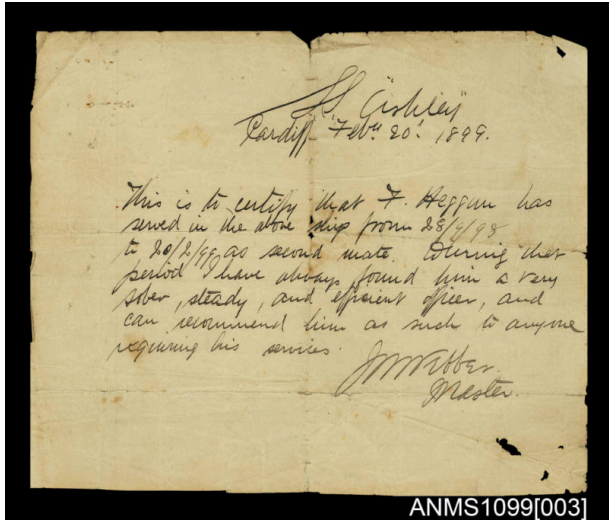 SS "Ashley"
Cardiff Feby 20: 1899.
This is to certify that F. Heggum has
served in the above ship from 28/9/98
to 20/2/99 as second mate. During that
period I have always found him a very
sober, steady, and efficient officer, and
can recommend him as such to anyone
requiring his services.
JW Webber.
Master.
ANMS1099[003]